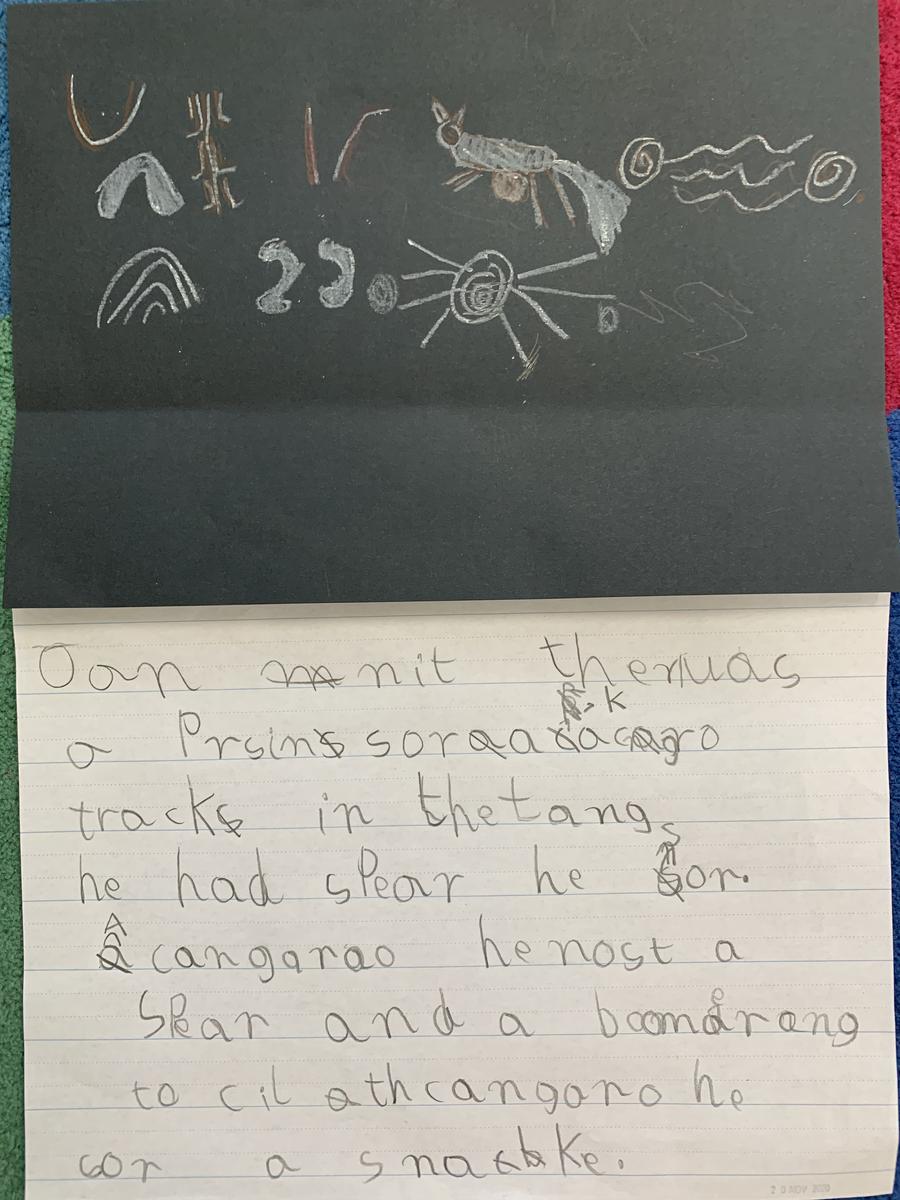 Oan nit theruas
a Prsins soraa a k cagro
tracks in thetang
he had spear he sor.
A cangarao he nost a
Spear and a boomerang
to cil ath cangoro he
cor a snake.
20 NOV 2020